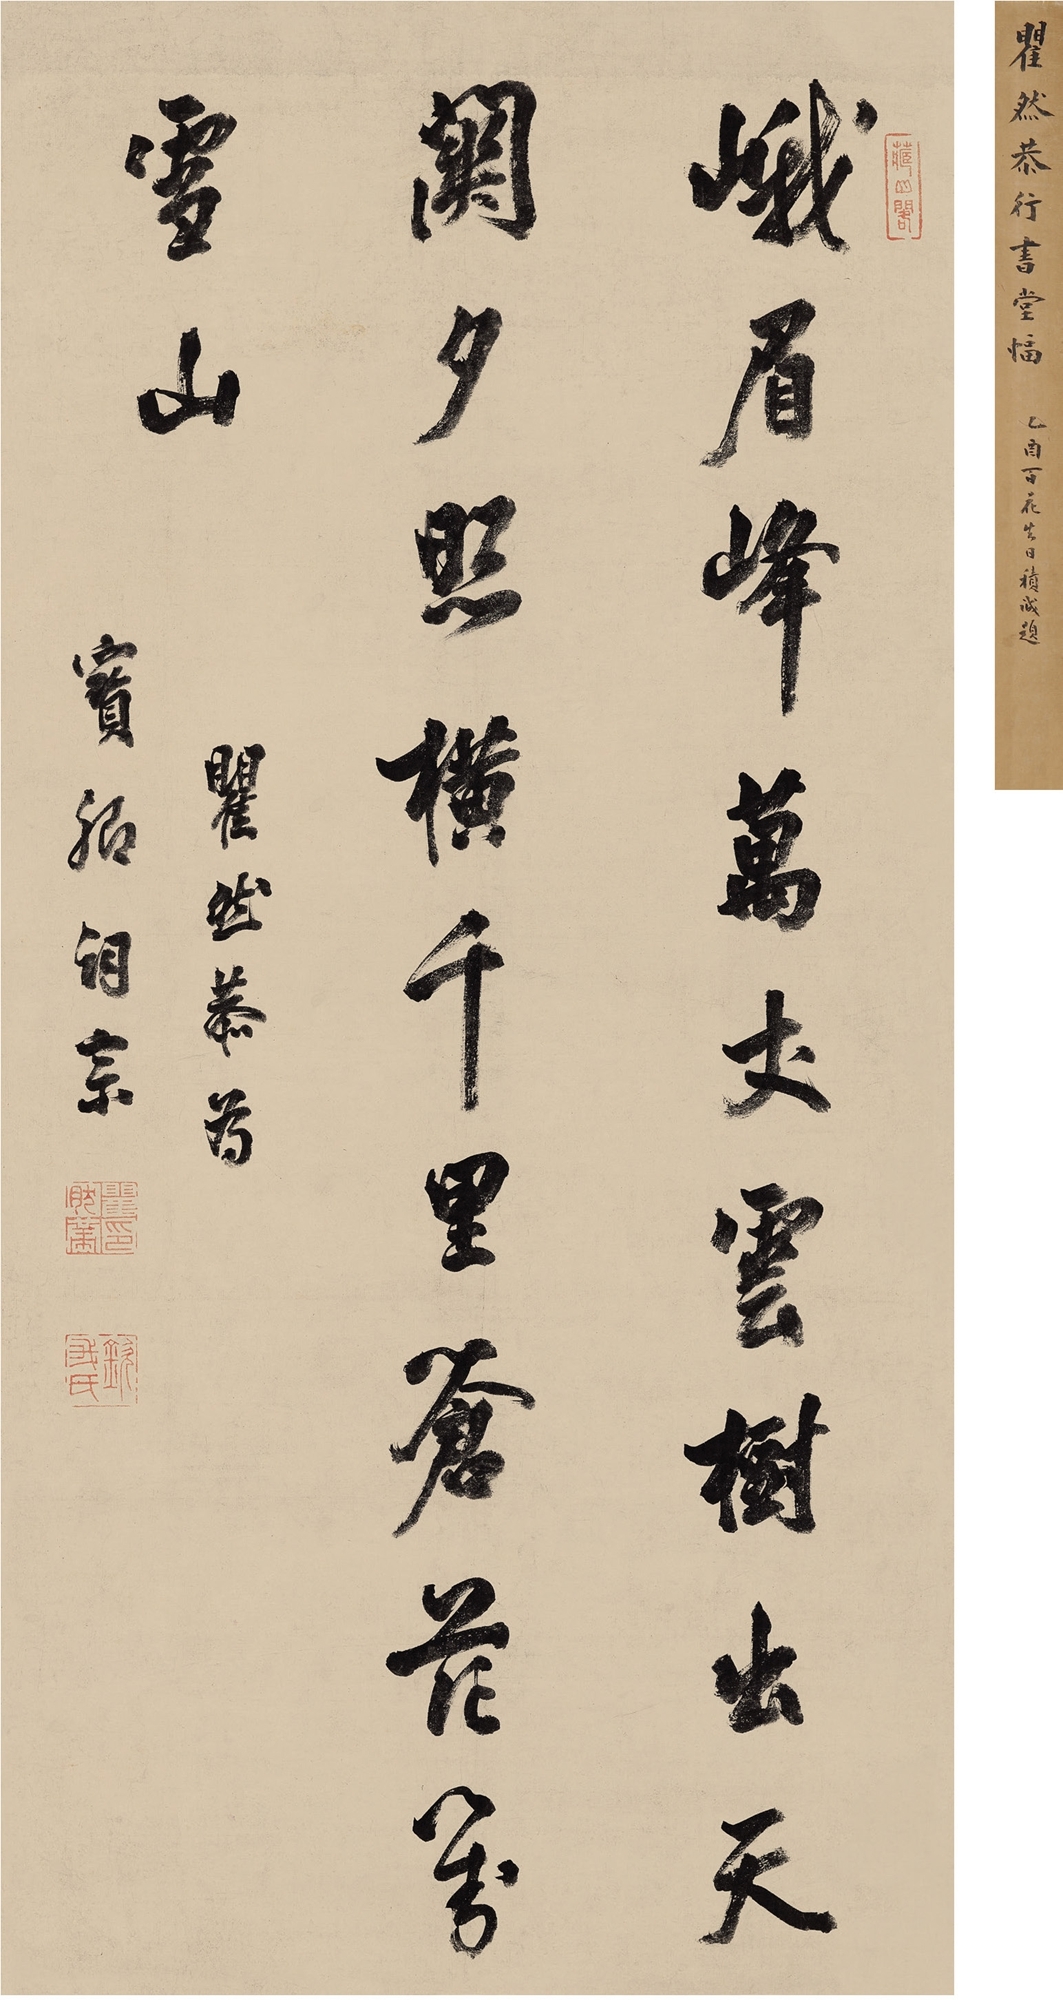 峨眉峰萬丈雲樹出天
關夕照橫千里蒼茫萬
雪山
瞿然恭為
寶詞宗
瞿然恭行書堂幅
乙酉百花生日積誠題